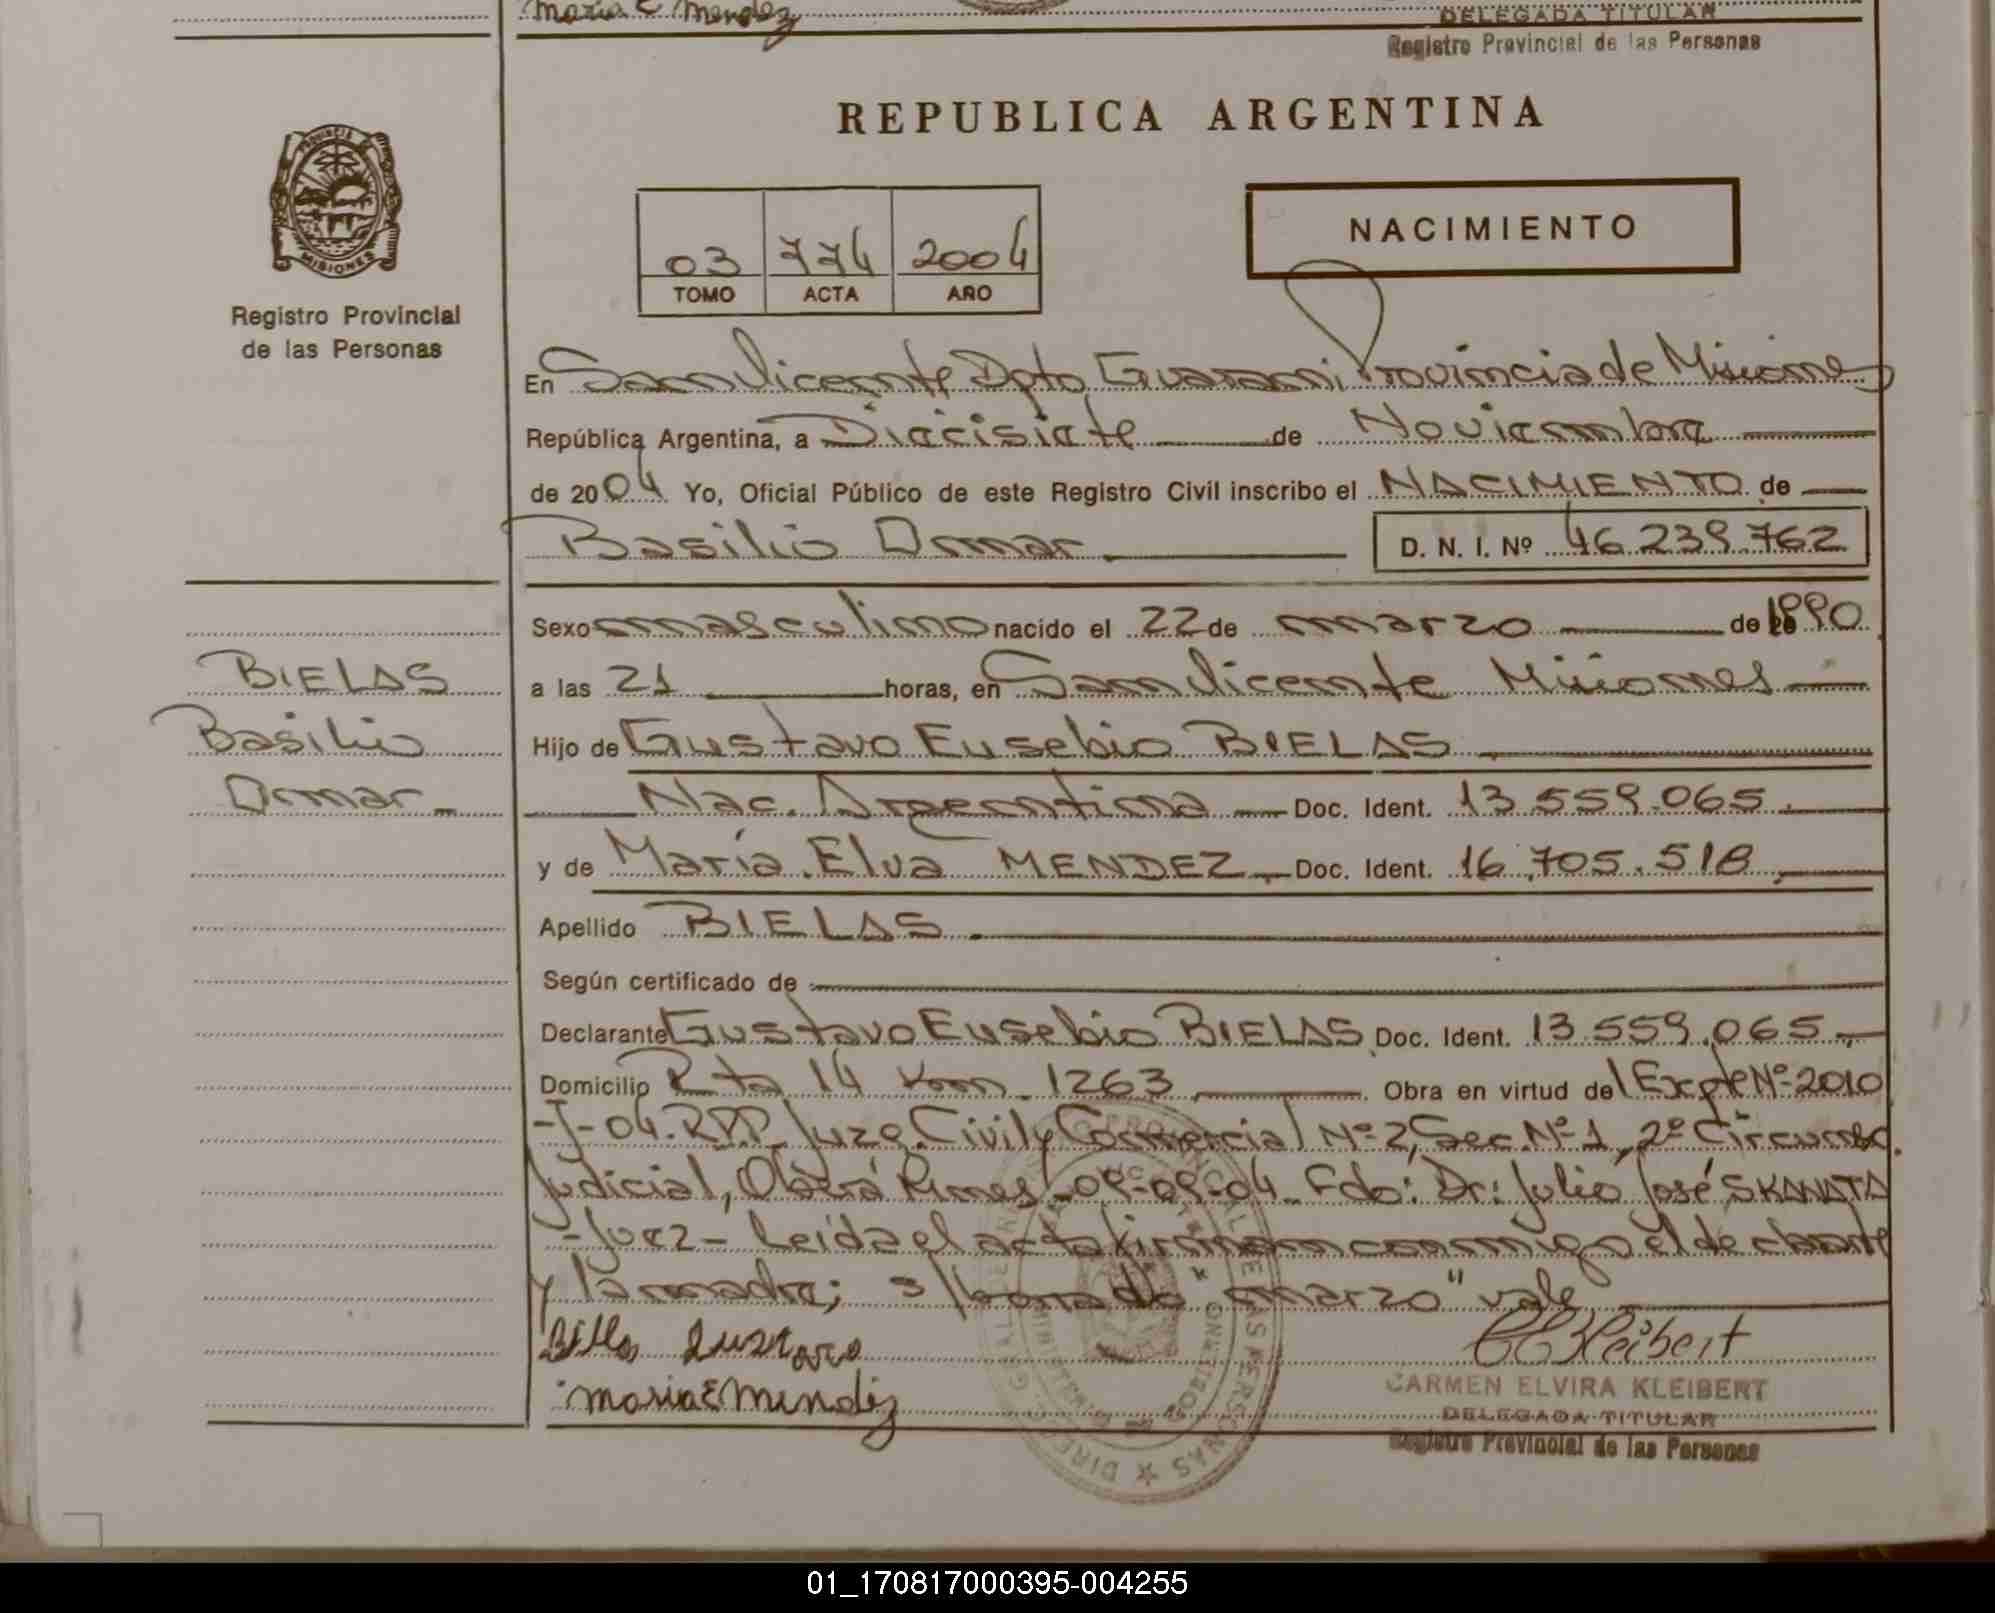 Maria E Mendez
DELEGADA TITULAR
Registro Provincial de las Personas
REPUBLICA ARGENTINA
PROVINCIA
MISIONES
Registro Provincial
de las Personas
03 774 2004
TOMO ACTA AÑO
NACIMIENTO
En San Vicente Dpto Guarani Provincia de Misiones
República Argentina, a Diecisiete de Noviembre
de 2004 Yo, Oficial Público de este Registro Civil inscribo el NACIMIENTO de
Basilio Omar D. N. I. Nº 46.239.762
Sexo masculino nacido el 22 de marzo de 1990
a las 21 horas, en San Vicente Misiones
Hijo de Gustavo Eusebio BIELAS
Nac. Argentina Doc. Ident. 13.559.065
y de María Elva MENDEZ Doc. Ident. 16.705.518
Apellido BIELAS
Según certificado de
Declarante Gustavo Eusebio BIELAS Doc. Ident. 13.559.065
Domicilio Rta 14 Km 1263 Obra en virtud del Expte Nº 2010
-J-04. RPP Juzg. Civil y Comercial Nº 2, Sec. Nº 1, 2º Circunsc.
Judicial, Oberá Mnes 09-09-04 Fdo: Dr: Julio José SKANATA
-Juez- Leida el acta firman conmigo el declarante
y la madre; s/borrado "marzo" vale
Bielas Gustavo
Maria E Mendez
BIELAS
Basilio
Omar
CKleibert
CARMEN ELVIRA KLEIBERT
DELEGADA TITULAR
Registro Provincial de las Personas
01_170817000395-004255